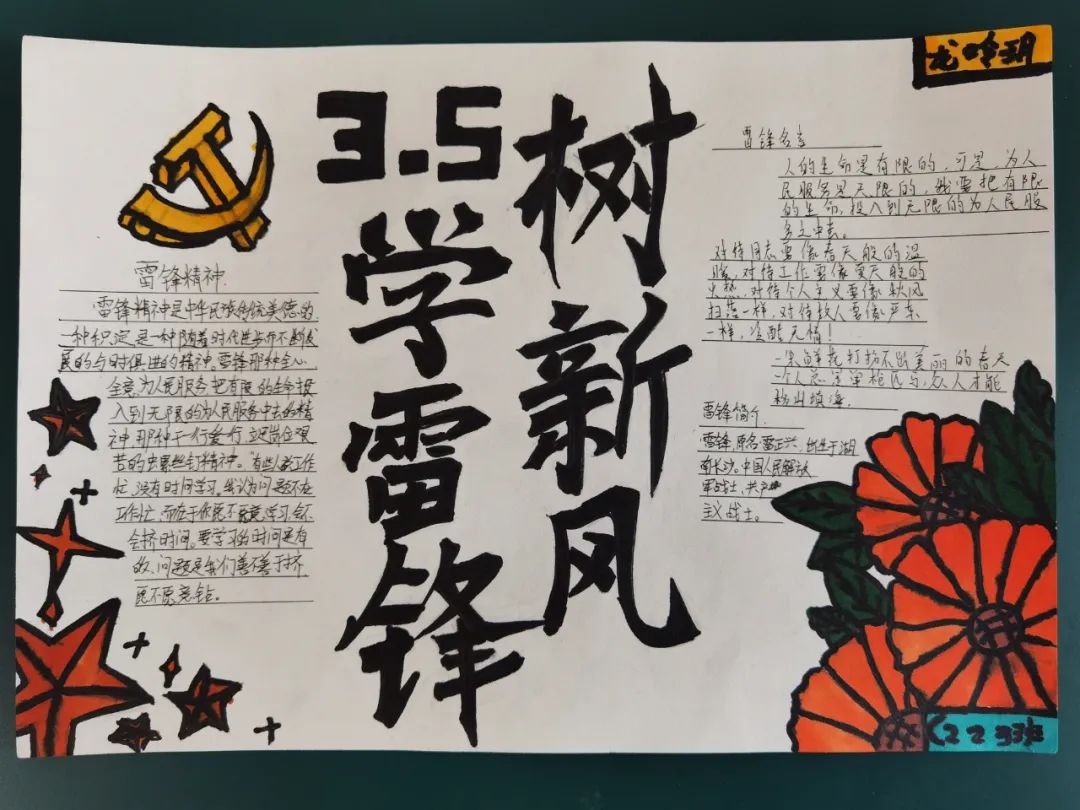 龙吟玥
3.5
学雷锋
树新风
雷锋精神.
雷锋精神是中华民族传统美德的
一种积淀,是一种随着时代进步而不断发
展的与时俱进的精神。雷锋那种全心
全意,为人民服务把有限的生命投
入到无限的为人民服务中去的精
神那种干一行爱一行,立足岗位艰
苦的 螺丝钉精神。"有些人说工作
忙、没有时间学习。我认为问题不在
工作忙,而在于你愿不愿意学习会不
会挤时间。要学习的时间是有
的,问题是我们善不善于挤
愿不愿意钻。
雷锋名言
人的生命是有限的,可是,为人
民服务是无限的,我要把有限
的生命,投入到无限的为人民服
务之中去。
对待同志要像春天般的温
暖,对待工作要像夏天般的
火热,对待个人主义要像秋风
扫落一样,对待敌人要像严冬
一样,冷酷无情!
一朵鲜花打扮不出美丽的春天
一个人总是单枪匹马,众人才能
移山填海。
雷锋简介
雷锋,原名雷正兴,出生于湖
南长沙。中国人民解放
军战士,共产
议战士。
(223班